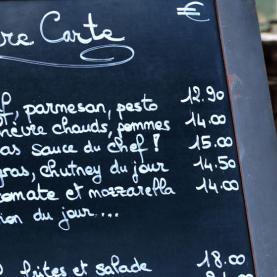 €
re Carte
f, parmesan, pesto 12.90
hèvre chauds, pommes 14.00
as sauce du chef ! 15.00
gras, chutney du jour 14.50
tomate et mozzarella 14.00
ion du jour....
frites et salade 18.00